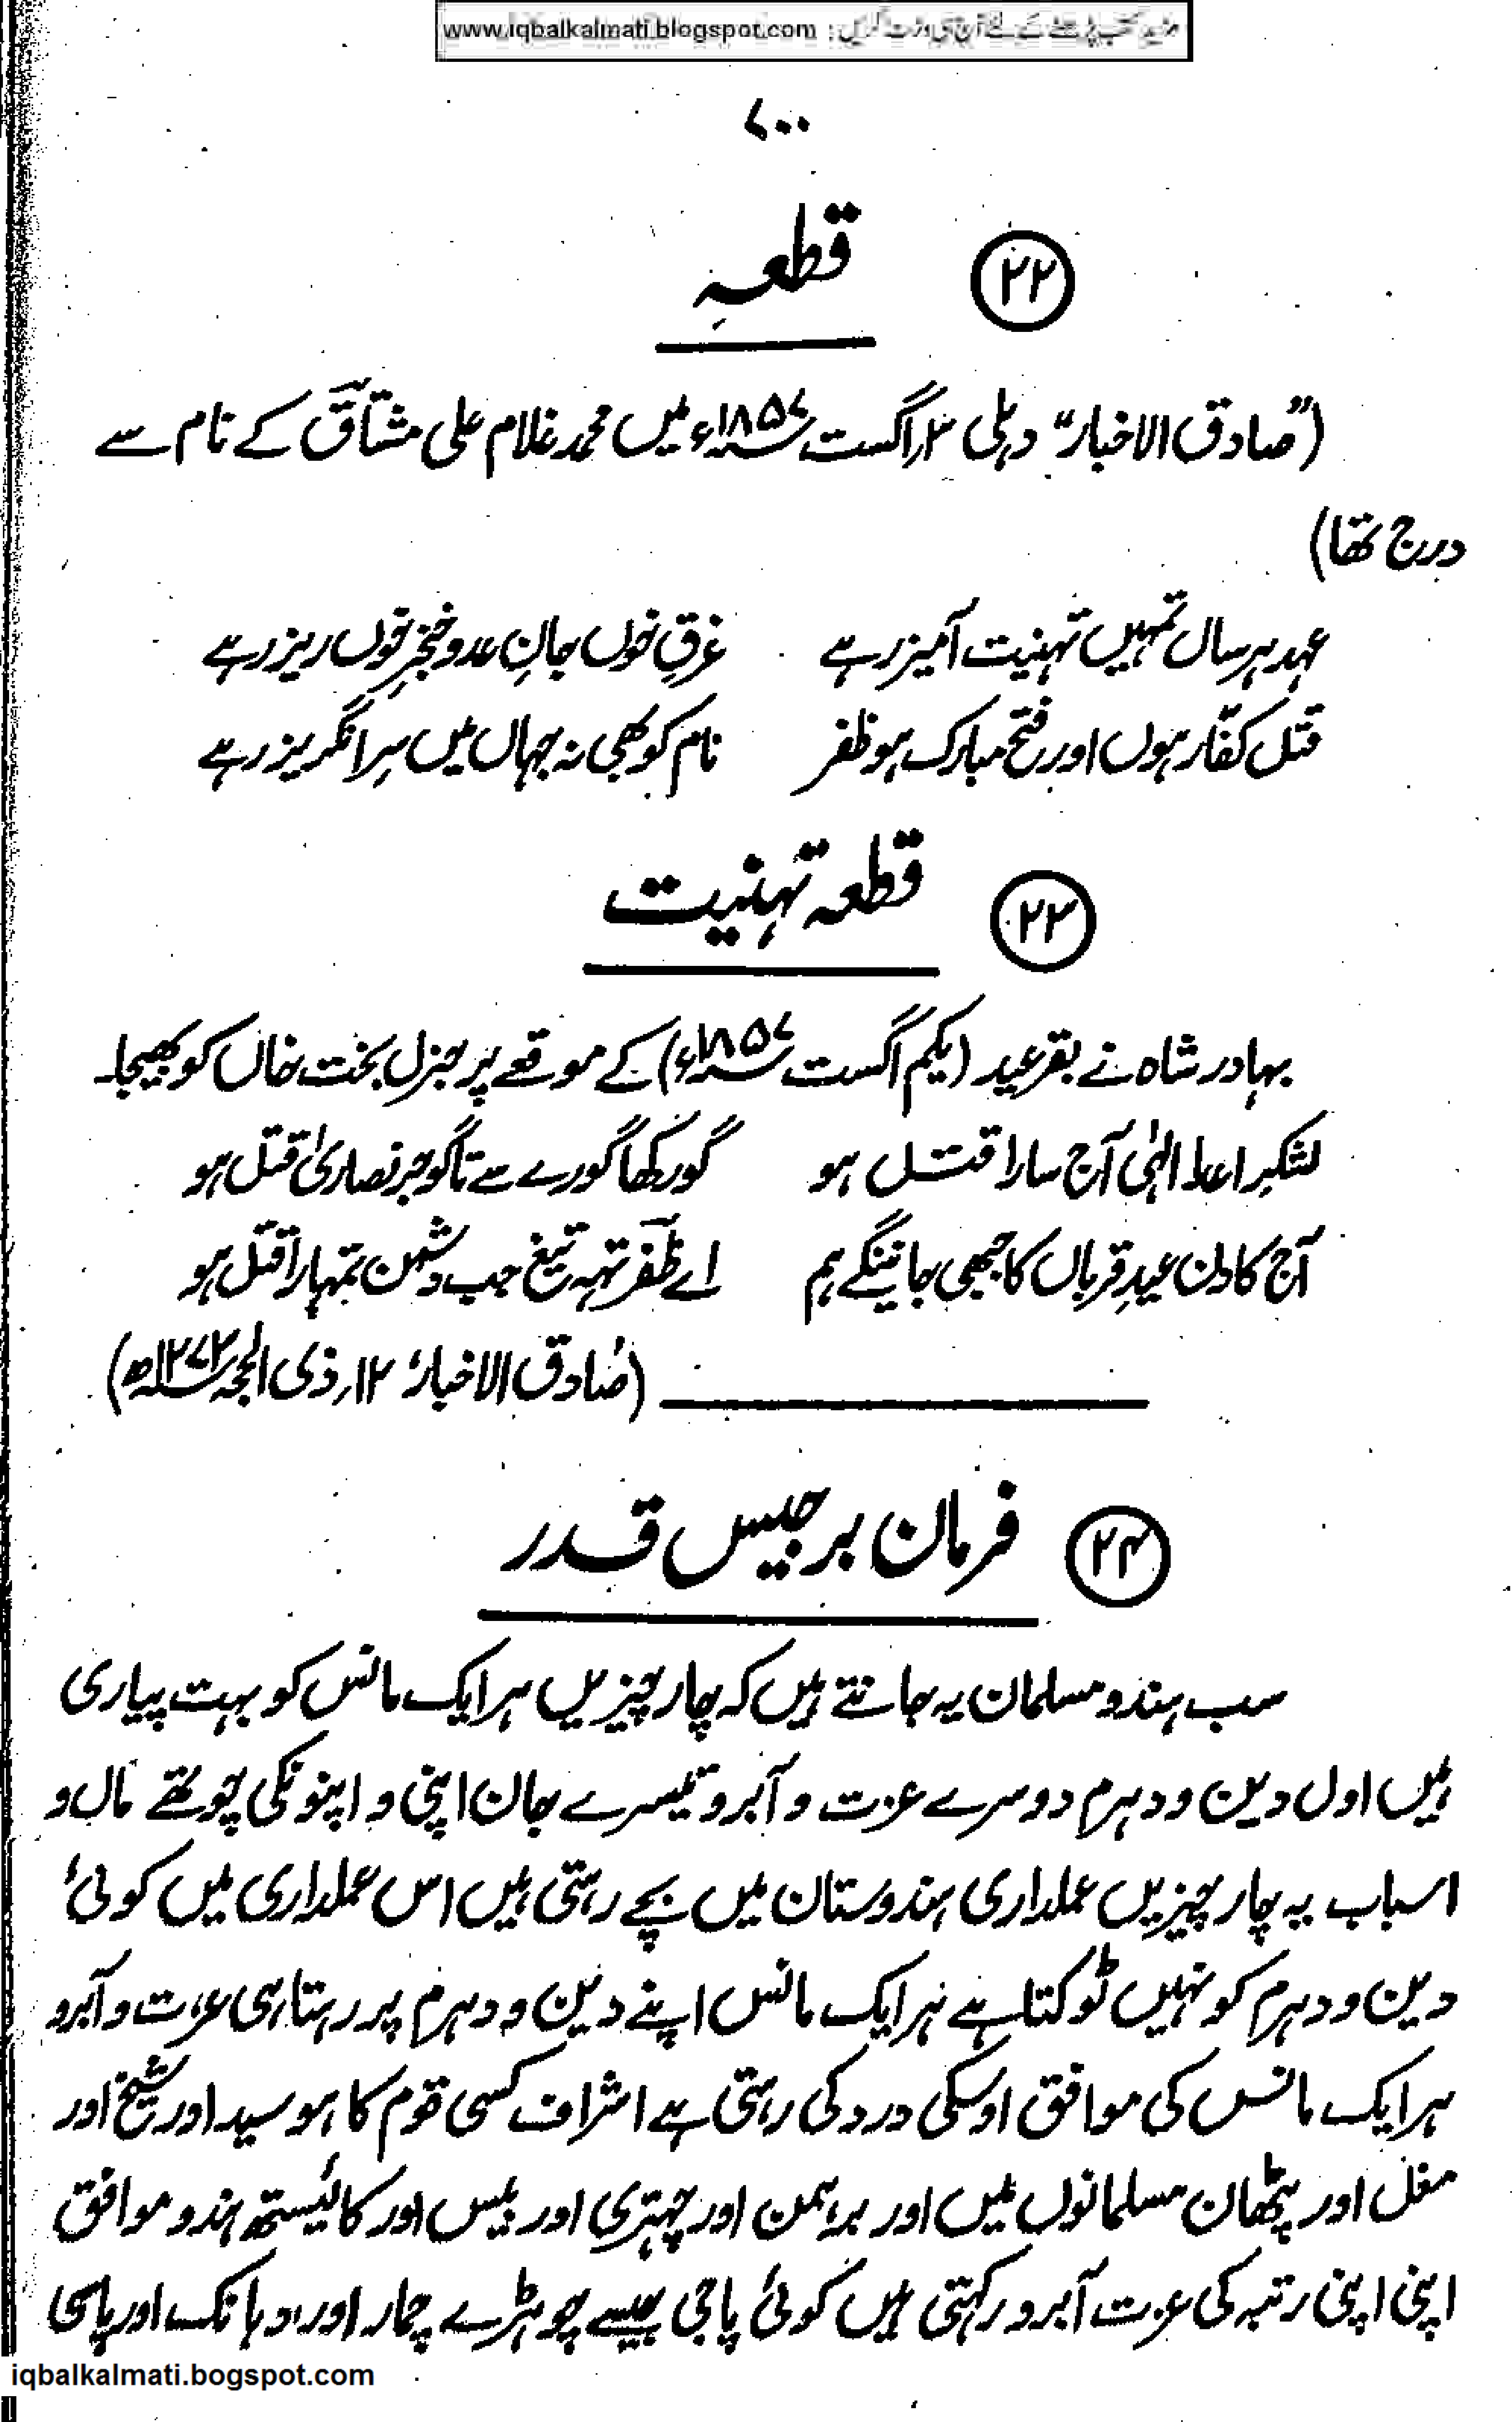 مزید کتب پڑھنے کے لئے آج ہی وزٹ کریں : www.iqbalkalmati.blogspot.com
۷۰۰
۲۲ قطعہِ
(”صادق الاخبار“ دہلی ۳؍اگست ۱۸۵۷ء میں محمد غلام علی مشتاقؔ کے نام سے
درج تھا)
عہد ہر سال تمہیں تہنیت آمیز رہے غرقِ خوں جانِ عدو خنجرِ خوں ریز رہے
قتل کفّار ہوں اور فتح مبارک ہو ظفر نام کو بھی نہ جہاں میں سرِ انگریز رہے
۲۳ قطعہ تہنیت
بہادر شاہ نے بقر عید (یکم اگست ۱۸۵۷ء) کے موقعے پر جنرل بخت خاں کو بھیجا۔
لشکر اعدا الٰہی آج سارا قتل ہو گورکھا گورے سے تا گوجر نصاریٰ قتل ہو
آج کا دن عیدِ قرباں کا جبھی جانینگے ہم اے ظفرؔ تہہ تیغ جب دشمن تمہارا قتل ہو
(صادق الاخبار، ۱۲؍ ذی الحجہ ۱۲۷۳ھ)
۲۴ فرمان برجیس قدر
سب ہندو مسلمان یہ جانتے ہیں کہ چار چیزیں ہر ایک مانس کو بہت پیاری
ہیں اول دین و دہرم دوسرے عزت و آبرو تیسرے جان اپنی و اپنونکی چوتھے مال و
اسباب یہ چار چیزیں عملداری ہندوستان میں بچے رہتی ہیں اس عملداری میں کوئی
دین و دہرم کو نہیں ٹوکتا ہے ہر ایک مانس اپنے دین و دہرم پر رہتا ہی عزت و آبرو
ہر ایک مانس کی موافق اوسکی درد کی رہتی ہے اشراف کسی قوم کا ہو سید اور شیخ اور
مغل اور پٹھان مسلمانوں میں اور برہمن اور چہتری اور بیس اور کائیستھ ہندو موافق
اپنی اپنی رتبہ کی عزت آبرو رکہتی ہیں کوئی پاجی جیسے چوہڑے چمار اور دہانک اور پاسی
iqbalkalmati.bogspot.com